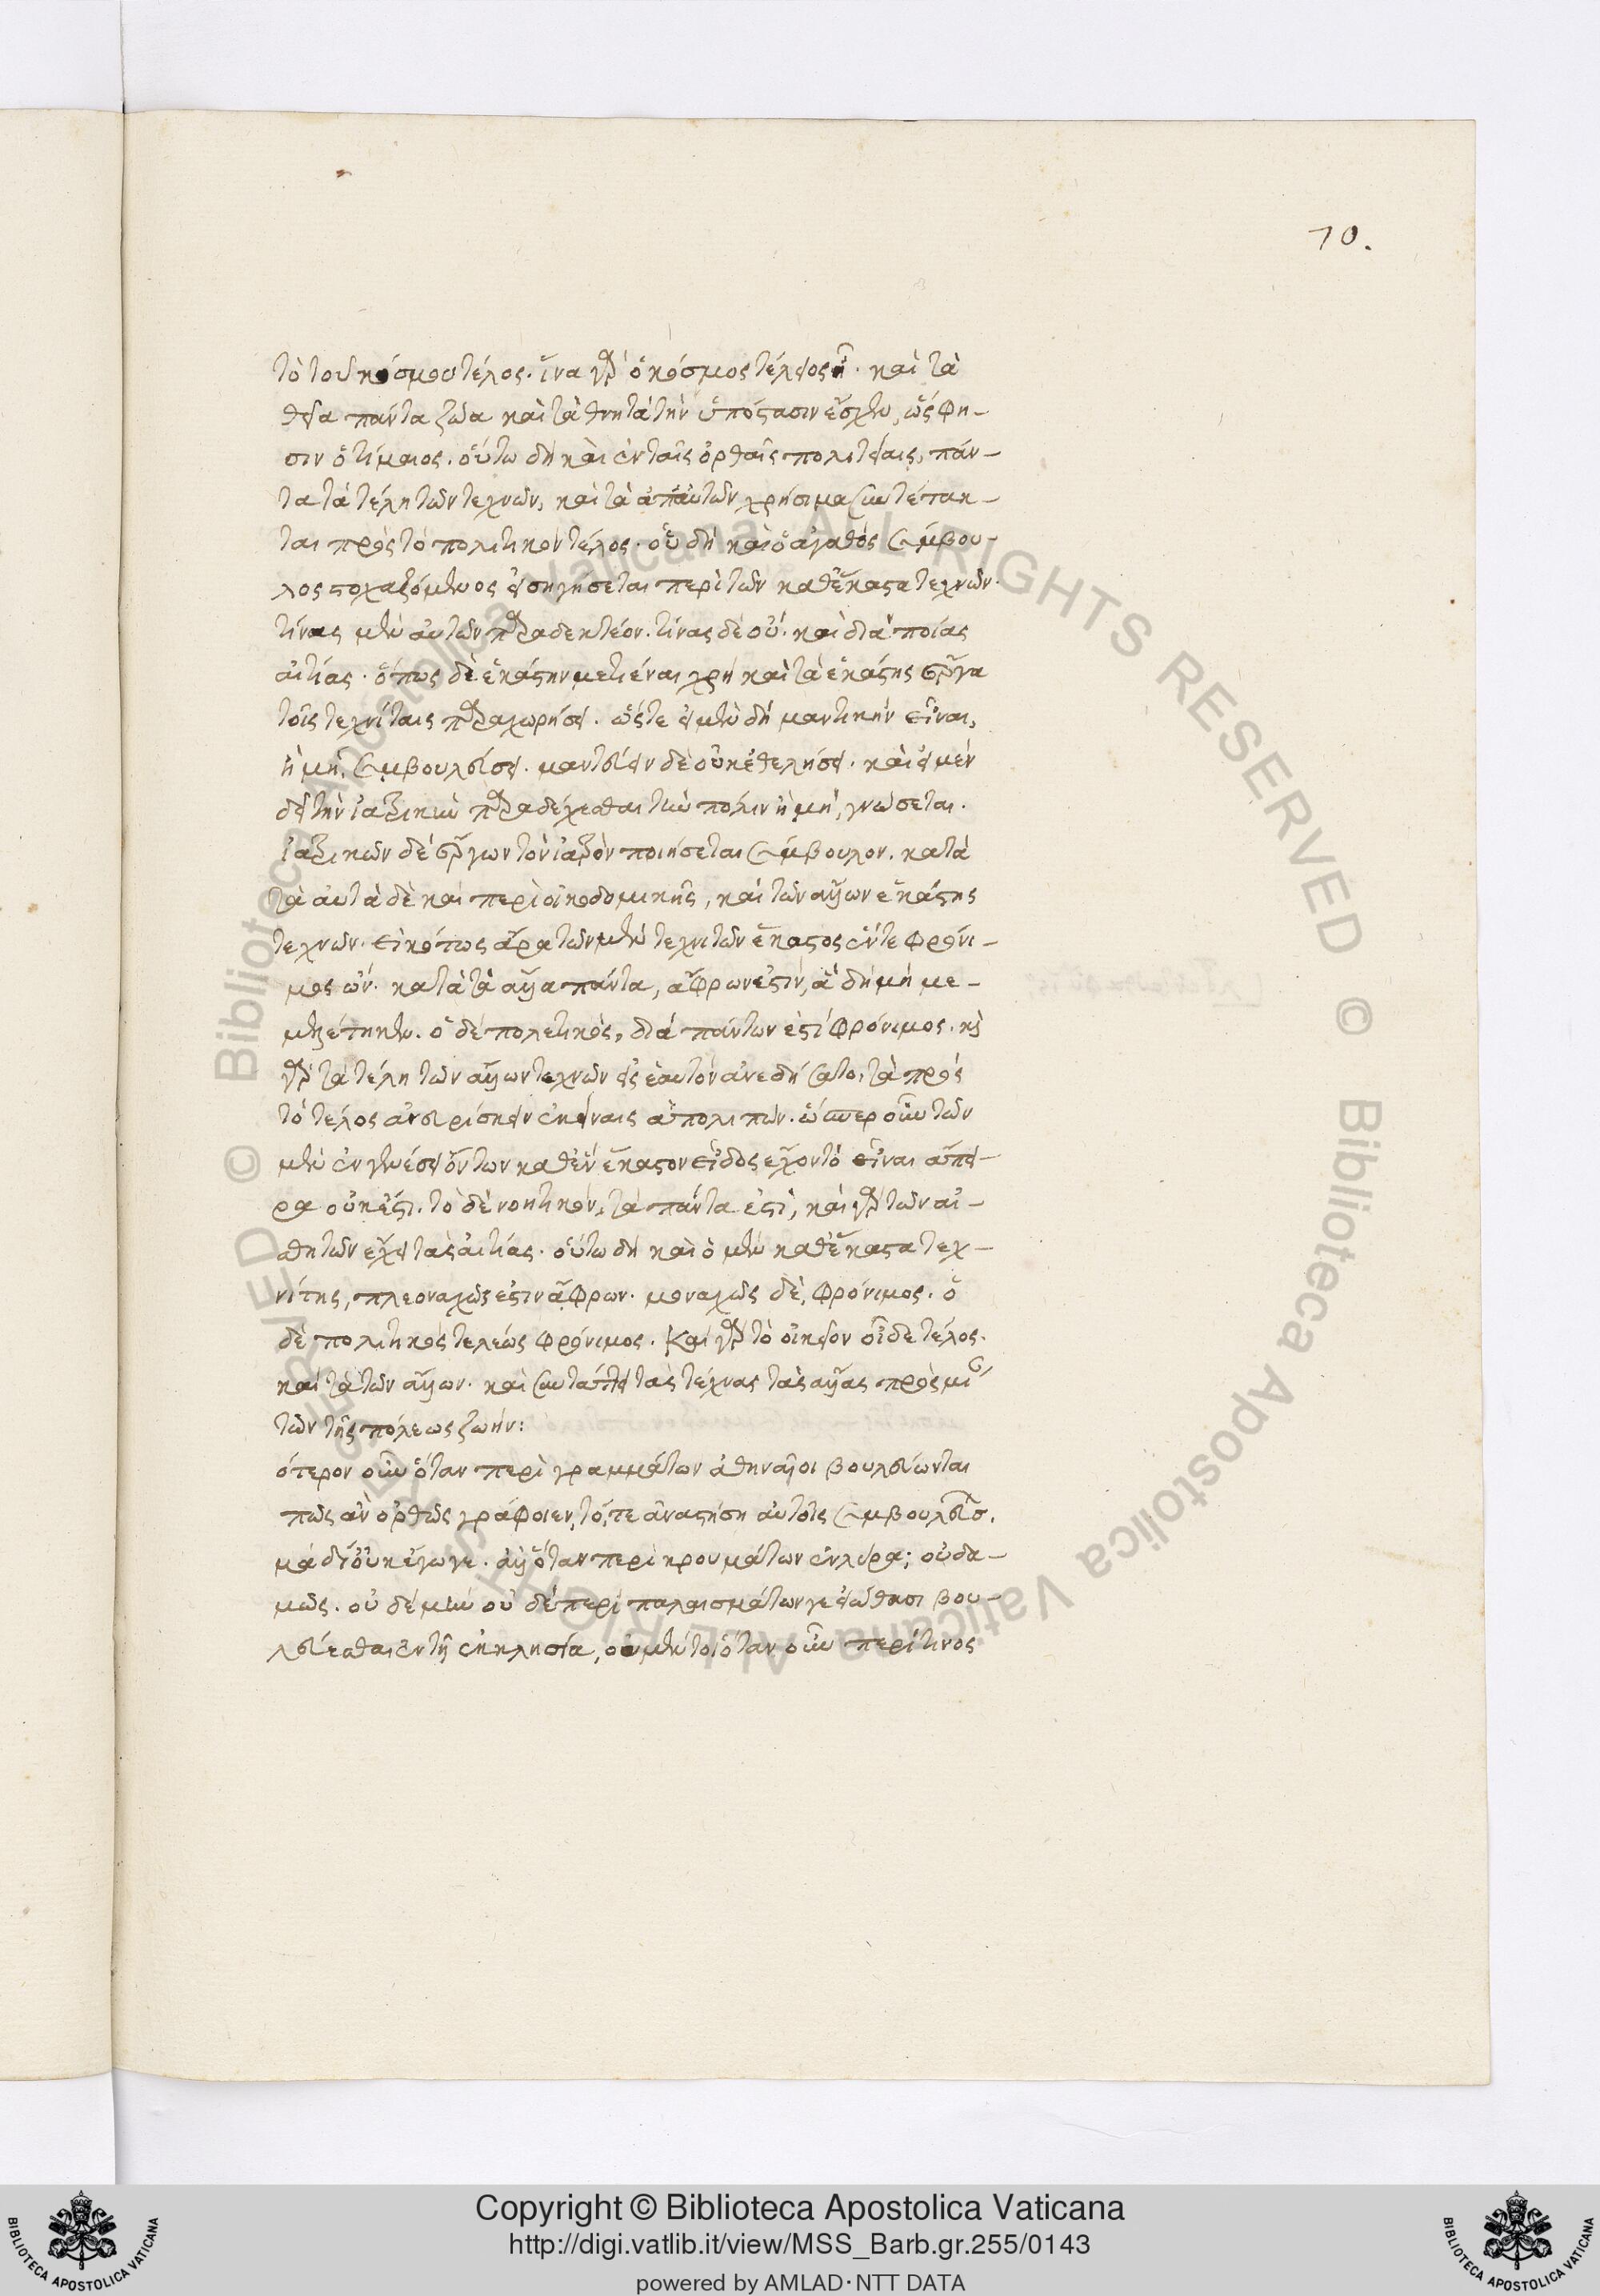 70.
τὸ τοῦ κόσμου τέλος. ἵνα γὰρ ὁ κόσμος τέλειος ῇ. καὶ τὰ
θεῖα πάντα ζῶα καὶ τὰ θνητὰ τὴν ὑπόστασιν ἔσχεν, ὥς φη-
σιν ὁ τίμαιος. οὕτω δὴ καὶ ἐν ταῖς ὀρθαῖς πολιτείαις, πάν-
τα τὰ τέλη τῶν τεχνῶν, καὶ τὰ ἀπ' αὐτῶν χρήσιμα συντέτακ-
ται πρὸς τὸ πολιτικὸν τέλος. οὗ δὴ καὶ ὁ ἀγαθὸς σύμβου-
λος στοχαζόμενος εἰσηγήσεται περὶ τῶν καθ' ἕκαστα τεχνῶν.
τίνας μὲν αὐτῶν παραδεκτέον. τίνας δὲ οὔ. καὶ διὰ ποίας
αἰτίας. ὅπως δὲ ἑκάστην μετιέναι χρὴ καὶ τὰ ἑκάστης ἔργα
τοῖς τεχνίταις παραχωρήσει. ὥστε εἰ μὲν δὴ μαντικὴν εἶναι,
ἢ μή, συμβουλεύσει. μαντεύειν δὲ οὐκ ἐθελήσει. καὶ εἰ μὲν
δεῖ τὴν ἰατρικὴν παραδέχεσθαι τὴν πόλιν ἢ μή, γνώσεται.
ἰατρικῶν δὲ ἔργων τὸν ἰατρὸν ποιήσεται σύμβουλον. κατὰ
τὰ αὐτὰ δὲ καὶ περὶ οἰκοδομικῆς, καὶ τῶν ἄλλων ἑκάστης
τεχνῶν. εἰκότως ἄρα τῶν μὲν τεχνιτῶν ἕκαστος ἕν τε φρόνι-
μος ὤν. κατὰ τὰ ἄλλα πάντα, ἄφρων ἐστίν, ἃ δὴ μὴ με-
μελέτηκεν. ὁ δὲ πολετικὸς, διὰ πάντων ἐστὶ φρόνιμος. καὶ
γὰρ τὰ τέλη τῶν ἄλλων τεχνῶν εἰς ἑαυτὸν ἀνεδήσατο, τὰ πρὸς
τὸ τέλος ἀνευρίσκειν ἐκείναις ἀπολιπών. ὥσπερ οὖν τῶν
μὲν ἐν γενέσει ὄντων καθ' ἓν ἕκαστον εἶδος ἔχον τὸ εἶναι ἄπει-
ρα οὐκ ἔστι. τὸ δὲ νοητικὸν, τὰ πάντα ἐστὶ, καὶ γὰρ τῶν αἰ-
σθητῶν ἔχει τὰς αἰτίας. οὕτω δὴ καὶ ὁ μὲν καθ' ἕκαστα τεχ-
νίτης, πλεοναχῶς ἐστιν ἄφρων. μοναχῶς δὲ, φρόνιμος. ὁ
δὲ πολιτικὸς τελέως φρόνιμος. Καὶ γὰρ τὸ οἰκεῖον οἶδε τέλος.
καὶ τὰ τῶν ἄλλων. καὶ συντάττει τὰς τέχνας τὰς ἄλλας πρὸς μί
τῶν τῆς πόλεως ζωήν:
ότερον οὖν ὅταν περὶ γραμμάτων ἀθηναῖοι βουλεύωνται
πῶς ἂν ὀρθῶς γράφοιεν, τότε ἀναστήση αὐτοῖς συμβουλεύσ.
μὰ δί' οὐκ ἔγωγε. ἀλλ' ὅταν περὶ κρουμάτων ἐν λύρα; οὐδα-
μῶς. οὐδὲ μὴν οὐδὲ περὶ παλαισμάτων γε εἰώθασι βου-
λεύεσθαι ἐν τῆ ἐκκλησία, οὐ μέντοι ὅταν οὖν περί τινος
Copyright © Biblioteca Apostolica Vaticana
http://digi.vatlib.it/view/MSS_Barb.gr.255/0143
powered by AMLAD·NTT DATA